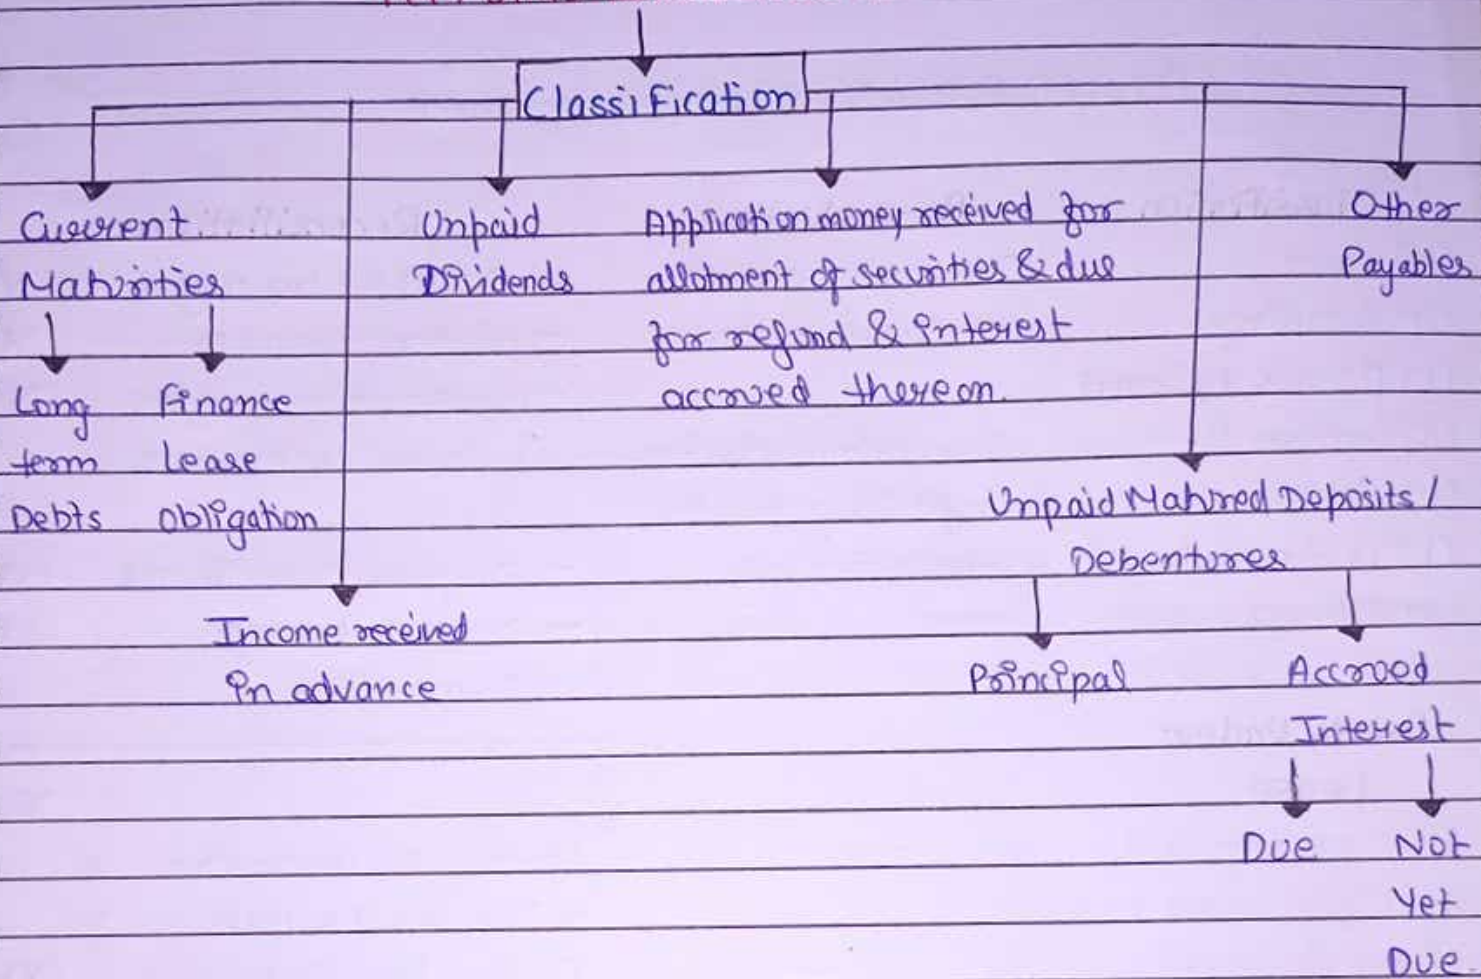 Classification
Current
Maturities
Long
term
Debts
Finance
lease
obligation
Income received
in advance
Unpaid
Dividends
Application money received for
allotment of securities & due
for refund & interest
accrued thereon.
Unpaid Matured Deposits /
Debentures
Principal
Accrued
Interest
Due
Not
Yet
Due
Other
Payables